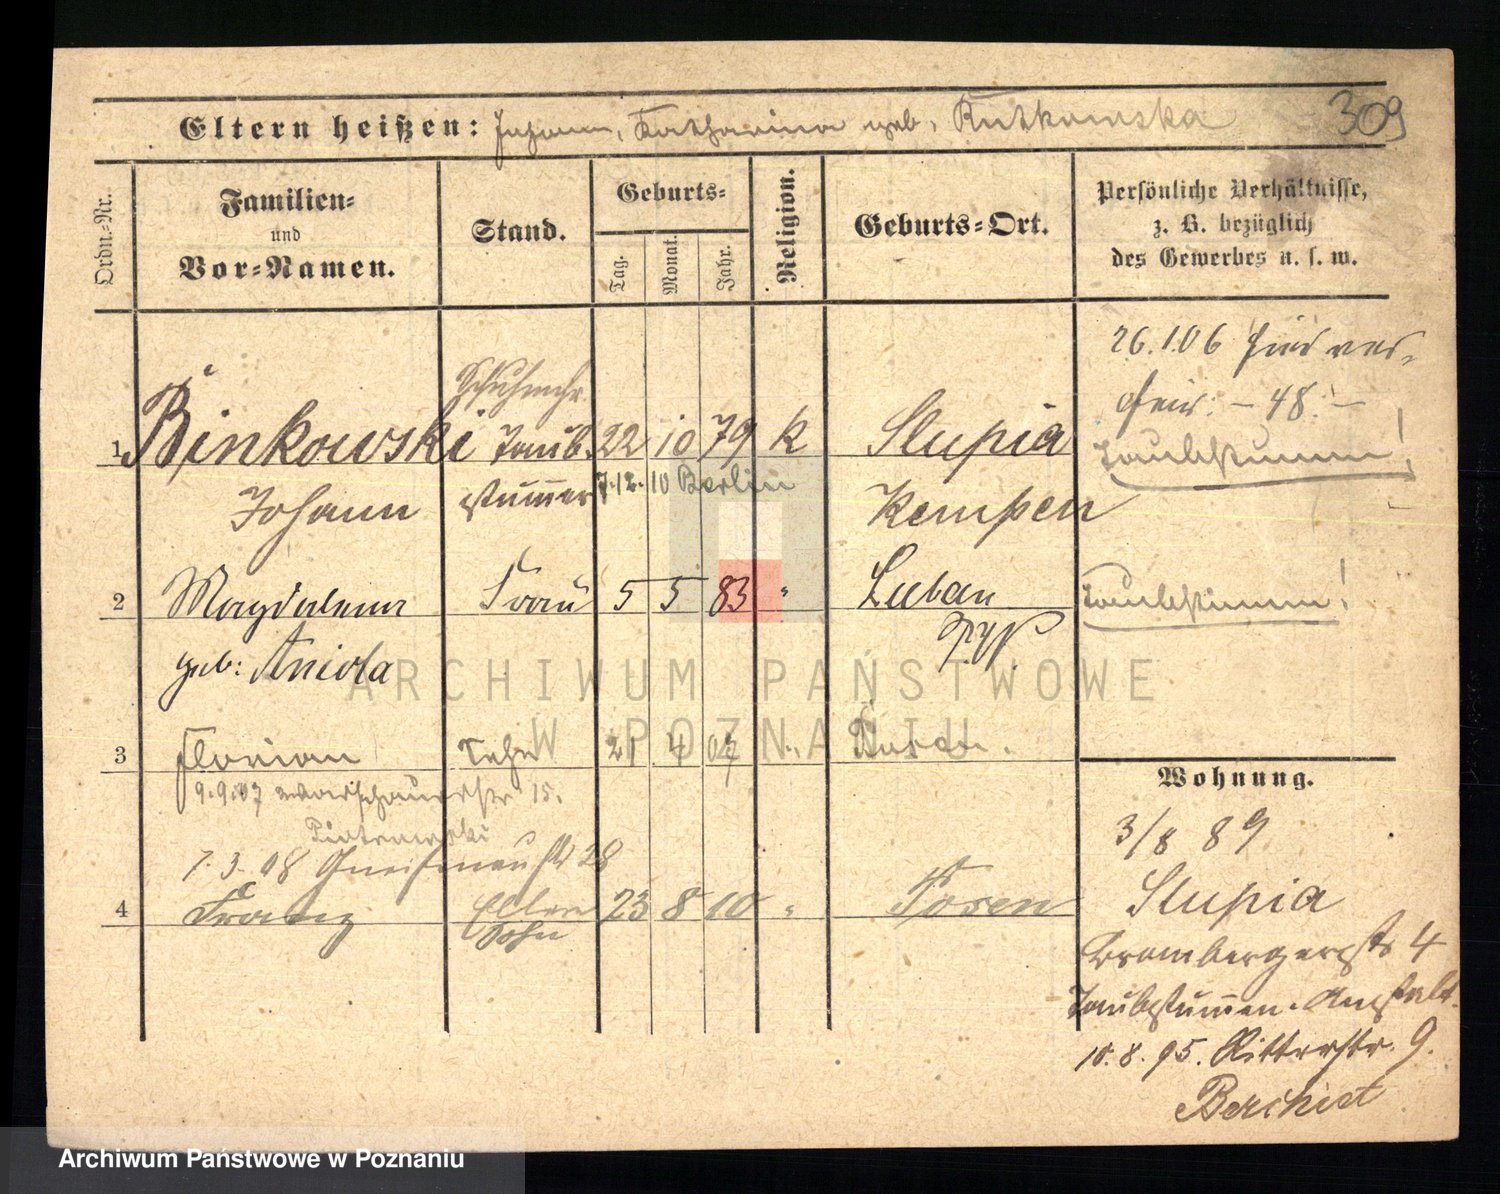 309
Eltern heißen: Johann, Katharina geb. Rutkowska
Ordn.-Nr.
Familien-
und
Vor-Namen.
Stand.
Geburts-
Tag.
Monat.
Jahr.
Religion.
Geburts-Ort.
Persönliche Verhältnisse,
z. B. bezüglich
des Gewerbes u. s. w.
26.1.06 hier ver-
heir: - 48: -
Schuhmchr.
1 Binkowski Taub- 22 10 79 k Slupia
Taubstumm!
Johann stummer 7.12. 10 Berlin Kempen
2 Magdalena Frau 5 5 83 " Luban
Taubstumm!
geb: Aniola
3 Florian Sohn 21 4 07 " Posen.
9.9.07 Warschauerstr 15.
Piotrowski
7.3.08 Gneisenaustr 28
4 Franz Sohn 23 8 10 " Posen
Wohnung.
3/8 89
Slupia
Brombergerstr 4
Taubstummen-Anstalt.
10.8.95. Ritterstr. 9.
ARCHIWUM PAŃSTWOWE
W POZNANIU
Archiwum Państwowe w Poznaniu